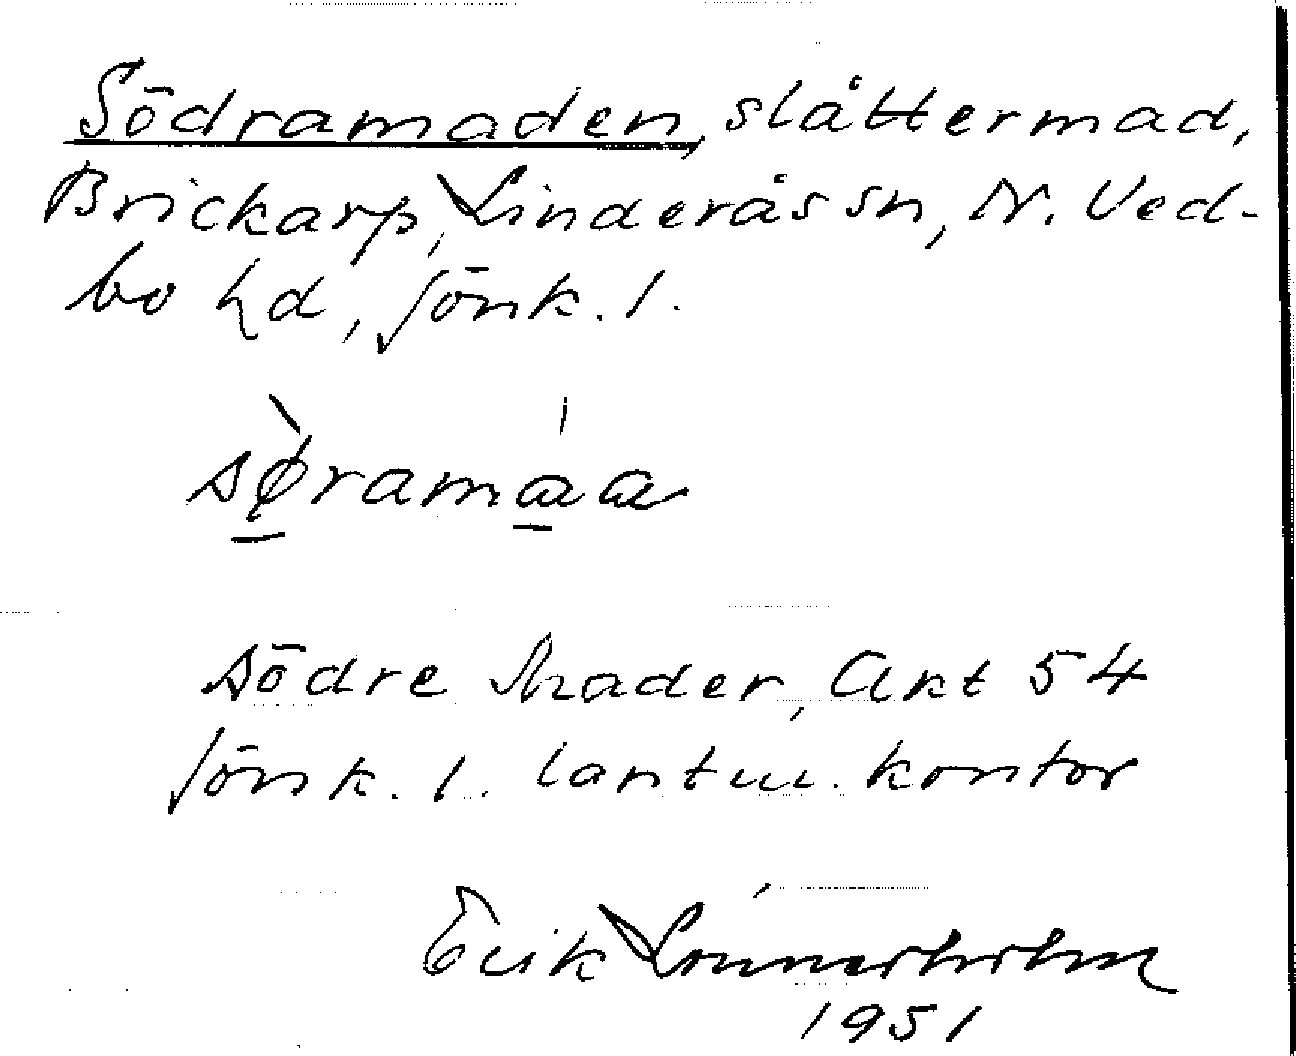 Södramaden, slåttermad,
Brickarp, Linderås sn, N. Ved-
bo hd, Jönk. l.
sø̠̀rama̠̍a
södre Mader, Akt 54
Jönk. l. lantm. kontor
Erik Lönnerholm
1951